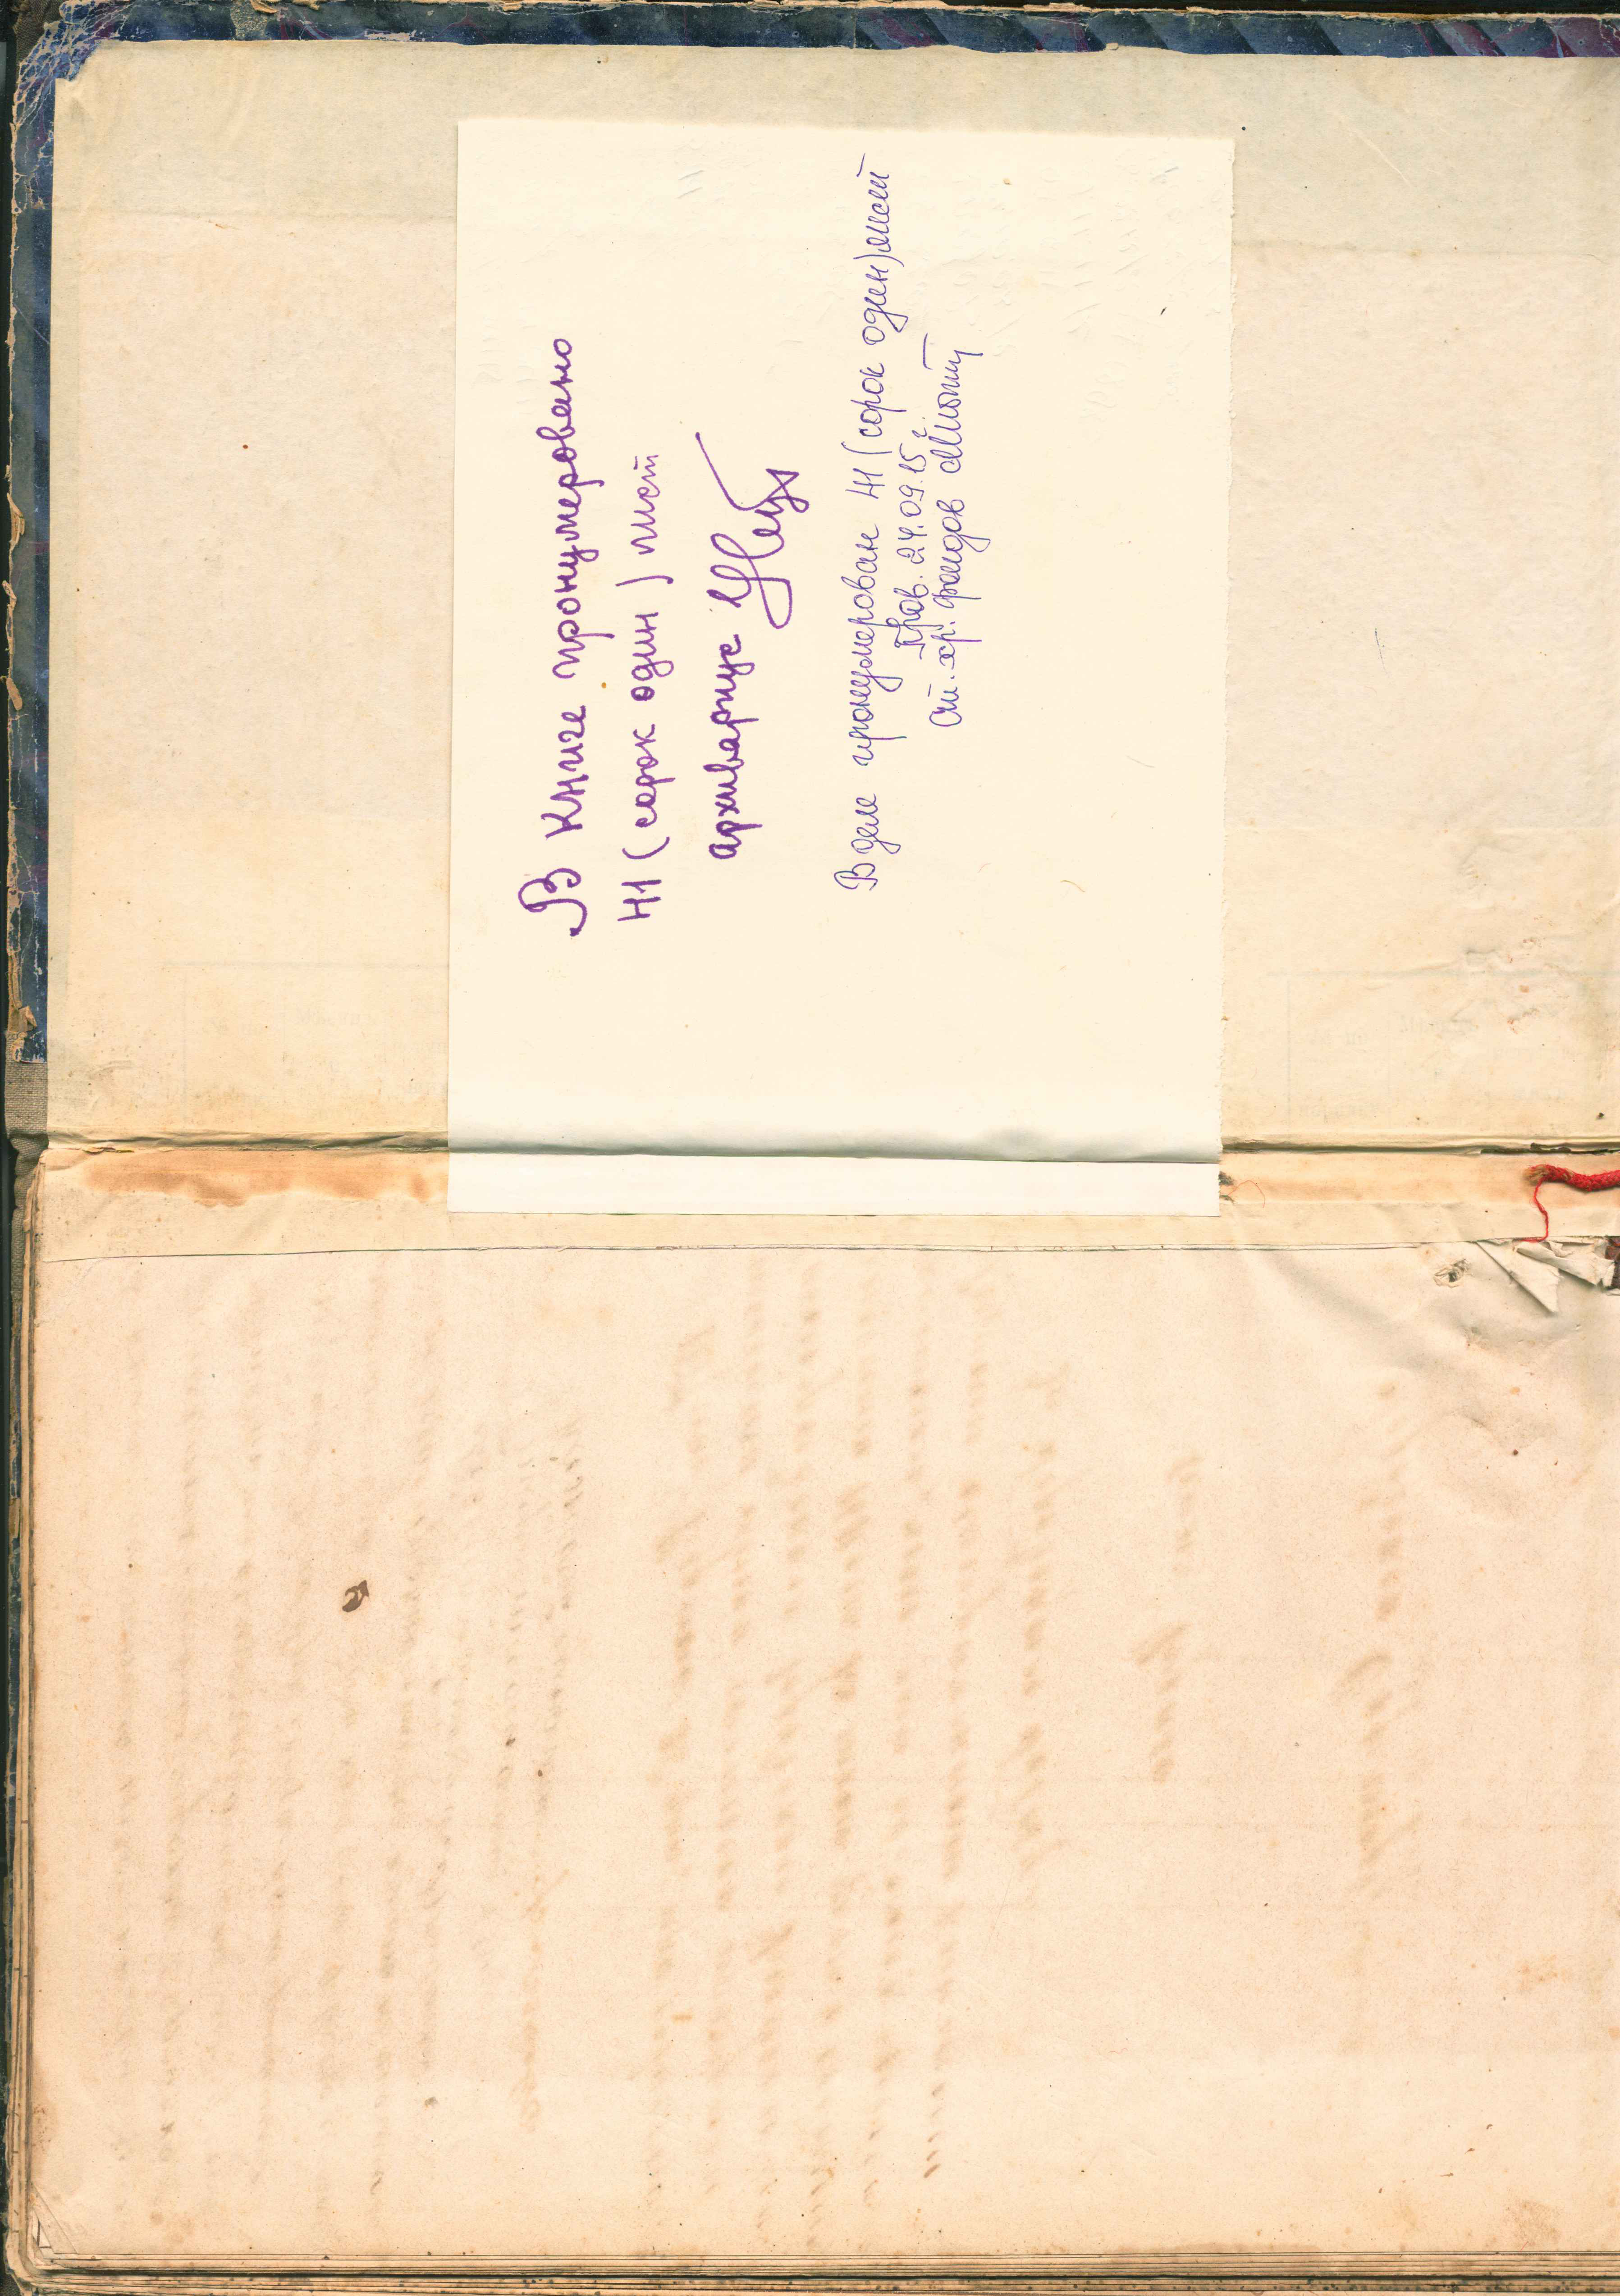 В книге пронумеровано
41 (сорок один) лист
архивариус
В деле пронумерован 41 (сорок один) лист
Пров. 24.09.15 г.
Ст. хр. фондов